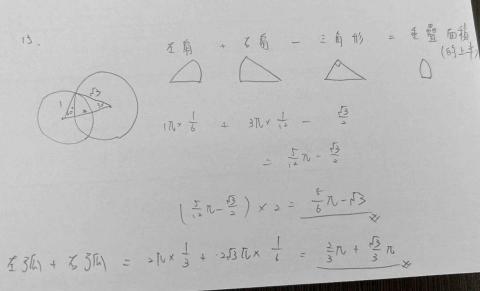 13.
左扇 + 右扇 - 三角形 = 重疊面積
(的上半)
1 √3
1π×1/6 + 3π×1/12 - √3/2
= 5/12π - √3/2
(5/12π - √3/2) × 2 = 5/6π - √3
= 2π×1/3 + 2√3π×1/6 = 2/3π + √3/3π